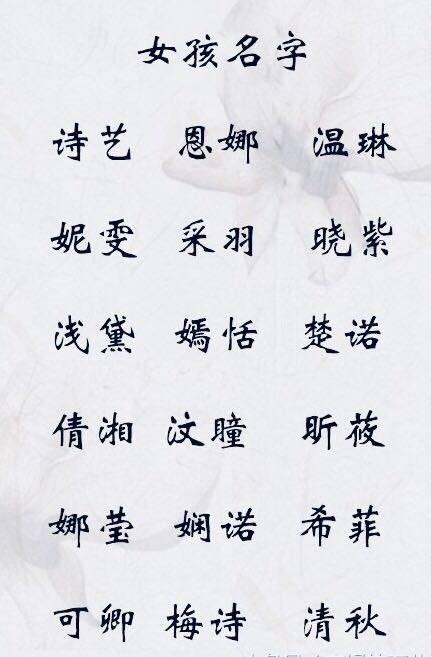 女孩名字
诗艺 恩娜 温琳
妮雯 采羽 晓紫
浅黛 嫣恬 楚诺
倩湘 汶瞳 昕莜
娜莹 娴诺 希菲
可卿 梅诗 清秋